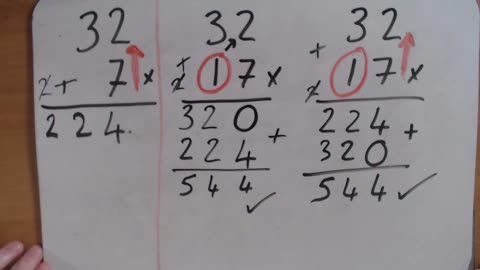 32
+ 7 x
224.
32
+
17 x
320
224 +
544 ✓
32
+
17 x
224 +
320
544 ✓